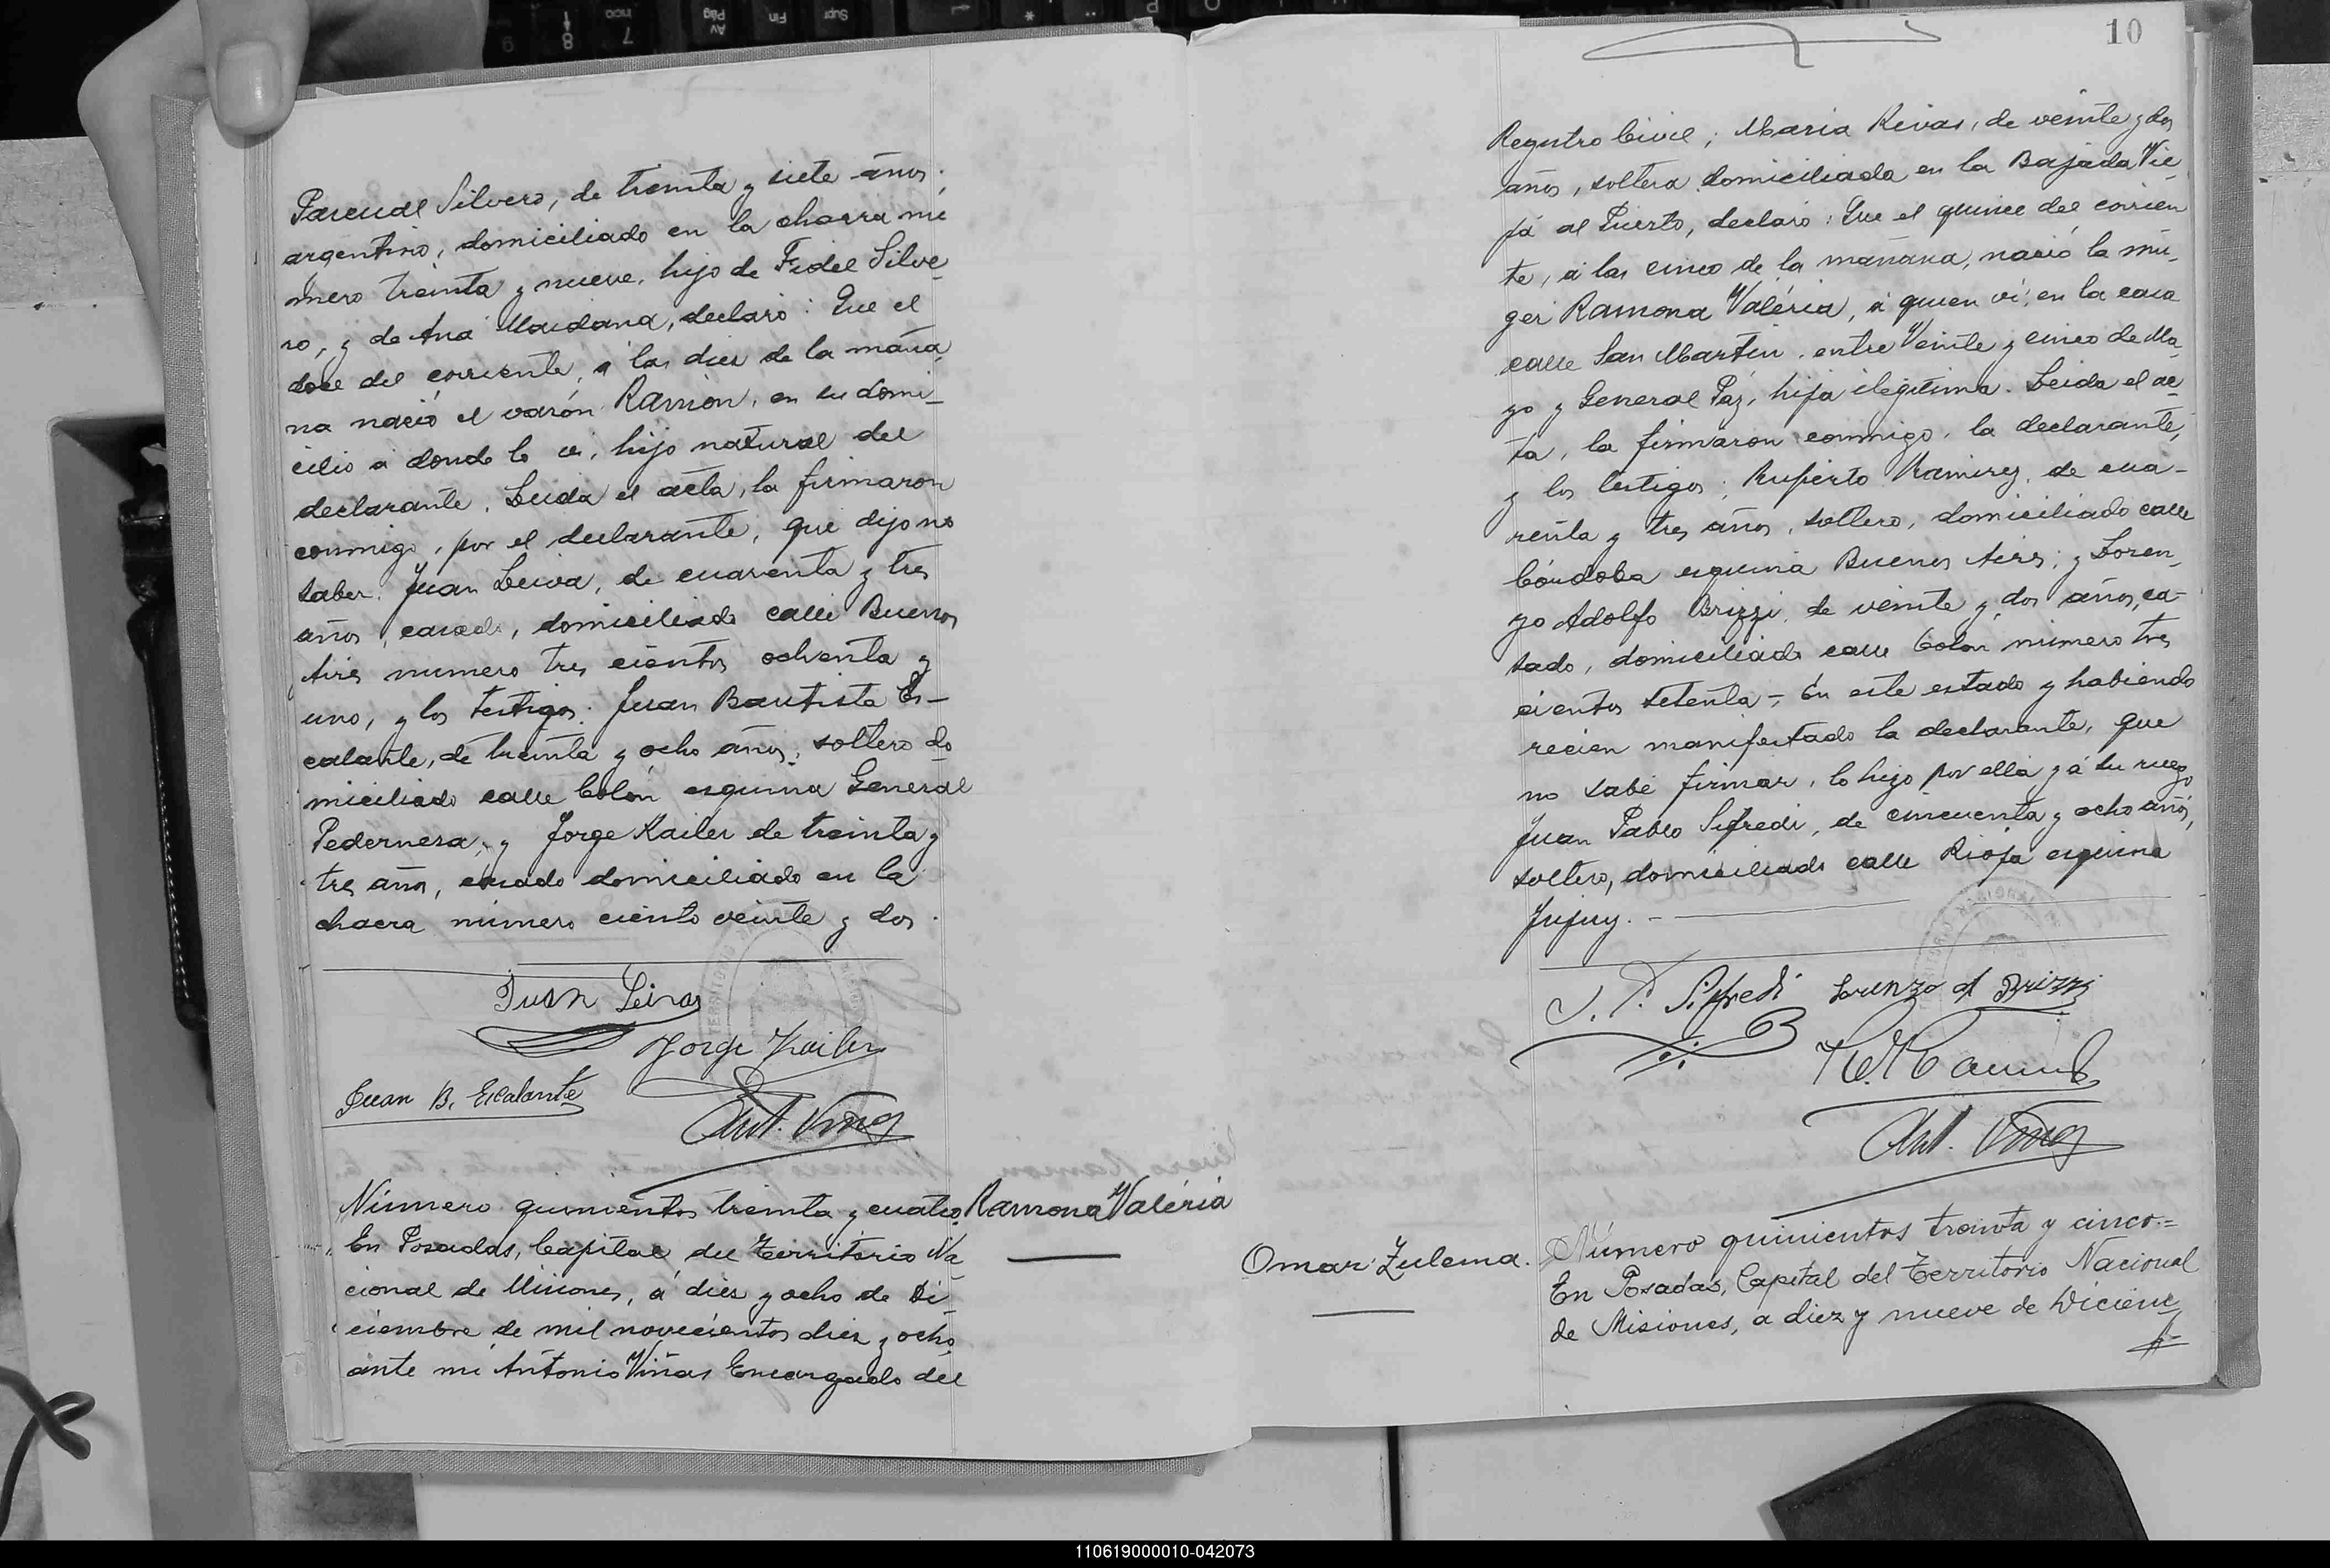 Pascual Silvero, de treinta y siete años.
argentino, domiciliado en la chacra nú
mero treinta y nueve, hijo de Fidel Silve
ro, y de Ana Maidana, declaró: Que el
doce del corriente, á las diez de la maña
na nació el varón Ramón, en su domi-
cilio á donde lo vi, hijo natural del
declarante. Leida el acta, la firmaron
conmigo, por el declarante, que dijo no
saber. Juan Leiva, de cuarenta y tres
años, casado, domiciliado calle Buenos
Aires numero tres cientos ochenta y
uno, y los testigos: Juan Bautista Es-
calante, de treinta y ocho años, soltero do
miciliado calle Colón esquina General
Pedernera, y Jorge Kailer de treinta y
tres años, casado domiciliado en la
chacra número ciento veinte y dos.
Juan Leiva
Jorge Kailer
Juan B. Escalante
Ant. Viñas
Número quinientos treinta y cuatro.
Ramona Valéria
En Posadas, Capital del Territorio Na
cional de Misiones, á diez y ocho de Di
ciembre de mil novecientos diez y ocho
ante mí Antonio Viñas Encargado del
10
Registro Civil; Maria Rivas, de veinte y dos
años, soltera domiciliada en la Bajada Vie
ja al Puerto, declaró: Que el quince del corrien
te, á las cinco de la mañana, nació la mu
ger Ramona Valéria, á quien ví, en la casa
calle San Martin, entre Veinte y cinco de Ma
yo y General Paz, hija ilegítima. Leida el ac
ta, la firmaron conmigo, la declarante,
y los testigos; Ruperto Ramirez, de cua-
renta y tres años, soltero, domiciliado calle
Córdoba esquina Buenos Aires; y Loren
zo Adolfo Brizzi, de veinte y dos años, ca-
sado, domiciliado calle Colon número tres
cientos setenta - En este estado y habiendo
recien manifestado la declarante, que
no sabe firmar, lo hizo por ella y á su ruego
Juan Pablo Sifredi, de cincuenta y ocho años,
soltero, domiciliado calle Rioja esquina
Jujuy. -
J. P. Sifredi Lorenzo A Brizzi
Ant. Viñas
Omar Zulema.
Número quinientos treinta y cinco.=
En Posadas, Capital del Territorio Nacional
de Misiones, a diez y nueve de Diciem
110619000010-042073